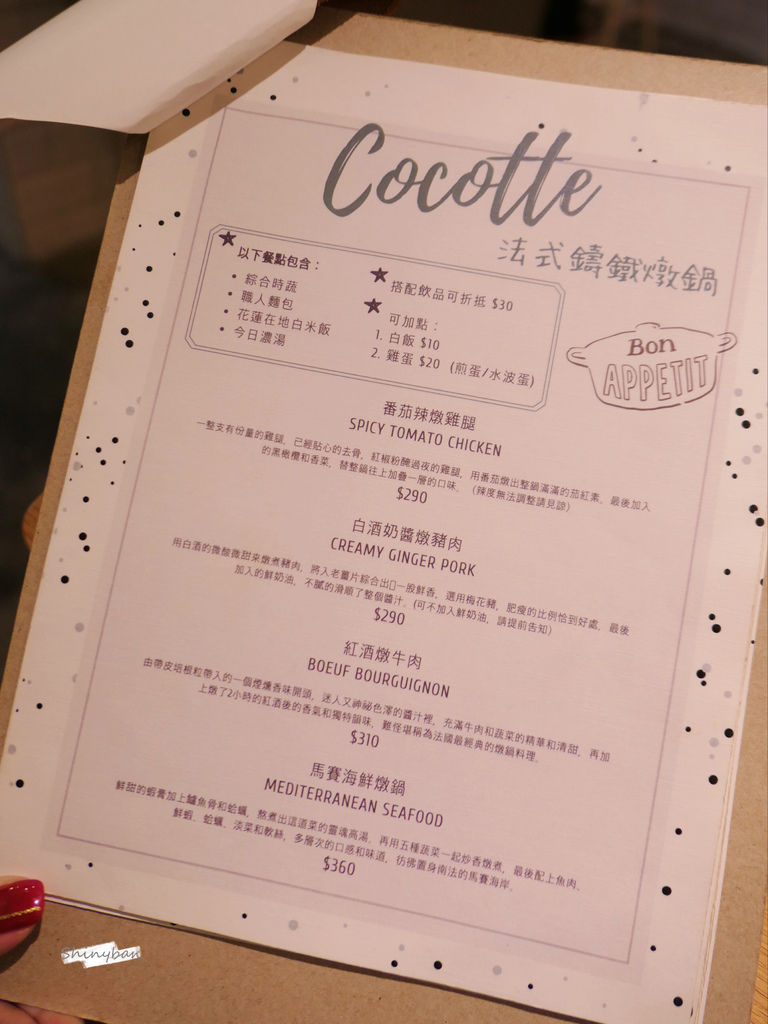 Cocotte
法式鑄鐵燉鍋
Bon
APPETIT
以下餐點包含：
• 綜合時蔬
• 職人麵包
• 花蓮在地白米飯
• 今日濃湯
搭配飲品可折抵 $30
可加點：
1. 白飯 $10
2. 雞蛋 $20 (煎蛋/水波蛋)
番茄辣燉雞腿
SPICY TOMATO CHICKEN
一整支有份量的雞腿，已經貼心的去骨，紅椒粉醃過夜的雞腿，用番茄燉出整鍋滿滿的茄紅素，最後加入
的黑橄欖和香菜，替整鍋往上加疊一層的口味。（辣度無法調整請見諒）
$290
白酒奶醬燉豬肉
CREAMY GINGER PORK
用白酒的微酸微甜來燉煮豬肉，將入老薑片綜合出▯一股鮮香，選用梅花豬，肥瘦的比例恰到好處，最後
加入的鮮奶油，不膩的滑順了整個醬汁。(可不加入鮮奶油，請提前告知）
$290
紅酒燉牛肉
BOEUF BOURGUIGNON
由帶皮培根粒帶入的一個煙燻香味開頭，迷人又神祕色澤的醬汁裡，充滿牛肉和蔬菜的精華和清甜，再加
上燉了2小時的紅酒後的香氣和獨特韻味，難怪堪稱為法國最經典的燉鍋料理。
$310
馬賽海鮮燉鍋
MEDITERRANEAN SEAFOOD
鮮甜的蝦膏加上鱸魚骨和蛤蠣，熬煮出這道菜的靈魂高湯。再用五種蔬菜一起炒香燉煮，最後配上魚肉、
鮮蝦、蛤蠣、淡菜和軟絲，多層次的口感和味道，彷彿置身南法的馬賽海岸。
$360
Shinyban